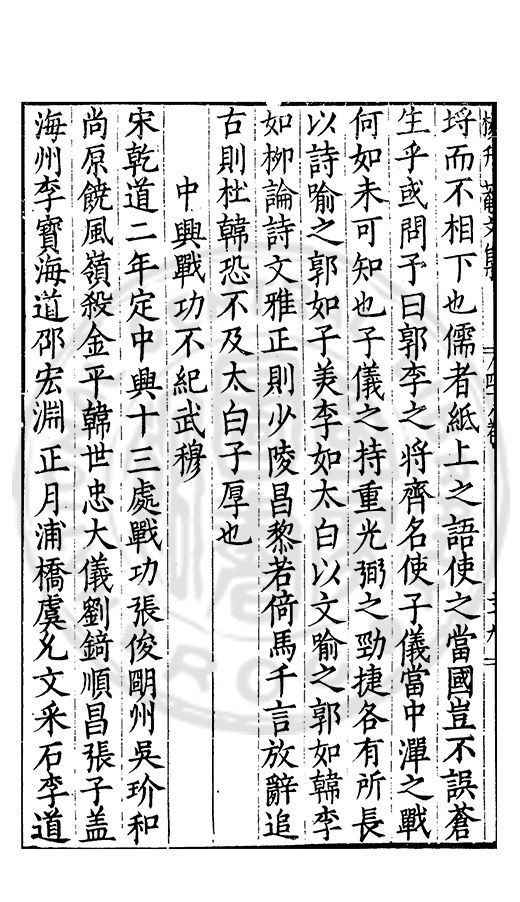 埒而不相下也儒者紙上之語使之當國豈不誤蒼
生乎或問予曰郭李之將齊名使子儀當中潬之戰
何如未可知也子儀之持重光弼之勁捷各有所長
以詩喻之郭如子美李如太白以文喻之郭如韓李
如柳論詩文雅正則少陵昌黎若倚馬千言放辭追
古則杜韓恐不及太白子厚也
中興戰功不紀武穆
宋乾道二年定中興十三處戰功張俊明州吳玠和
尚原饒風嶺殺金平韓世忠大儀劉錡順昌張子盖
海州李寶海道邵宏淵正月浦橋虞允文采石李道